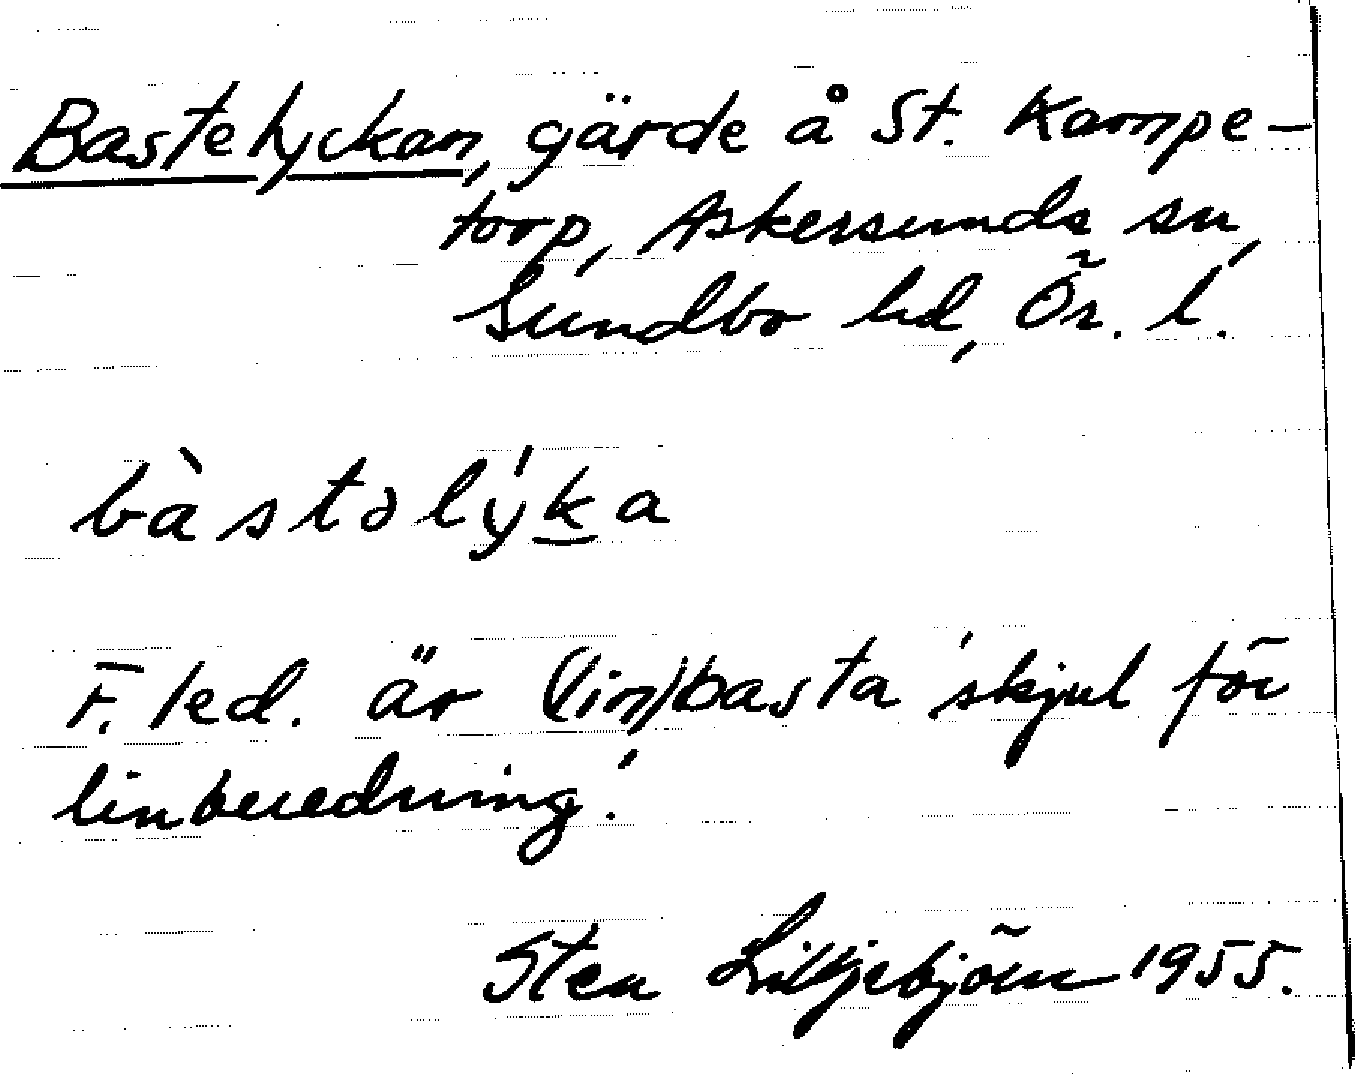 Bastelyckan, gärde å St. Kampe-
torp, Askersunds sn,
Sundbo hd, Ör. l.
bàstəlý̱ka
F. led. är (lin)basta 'skjul för
linberedning'.
Sten Lilljebjörn 1955.